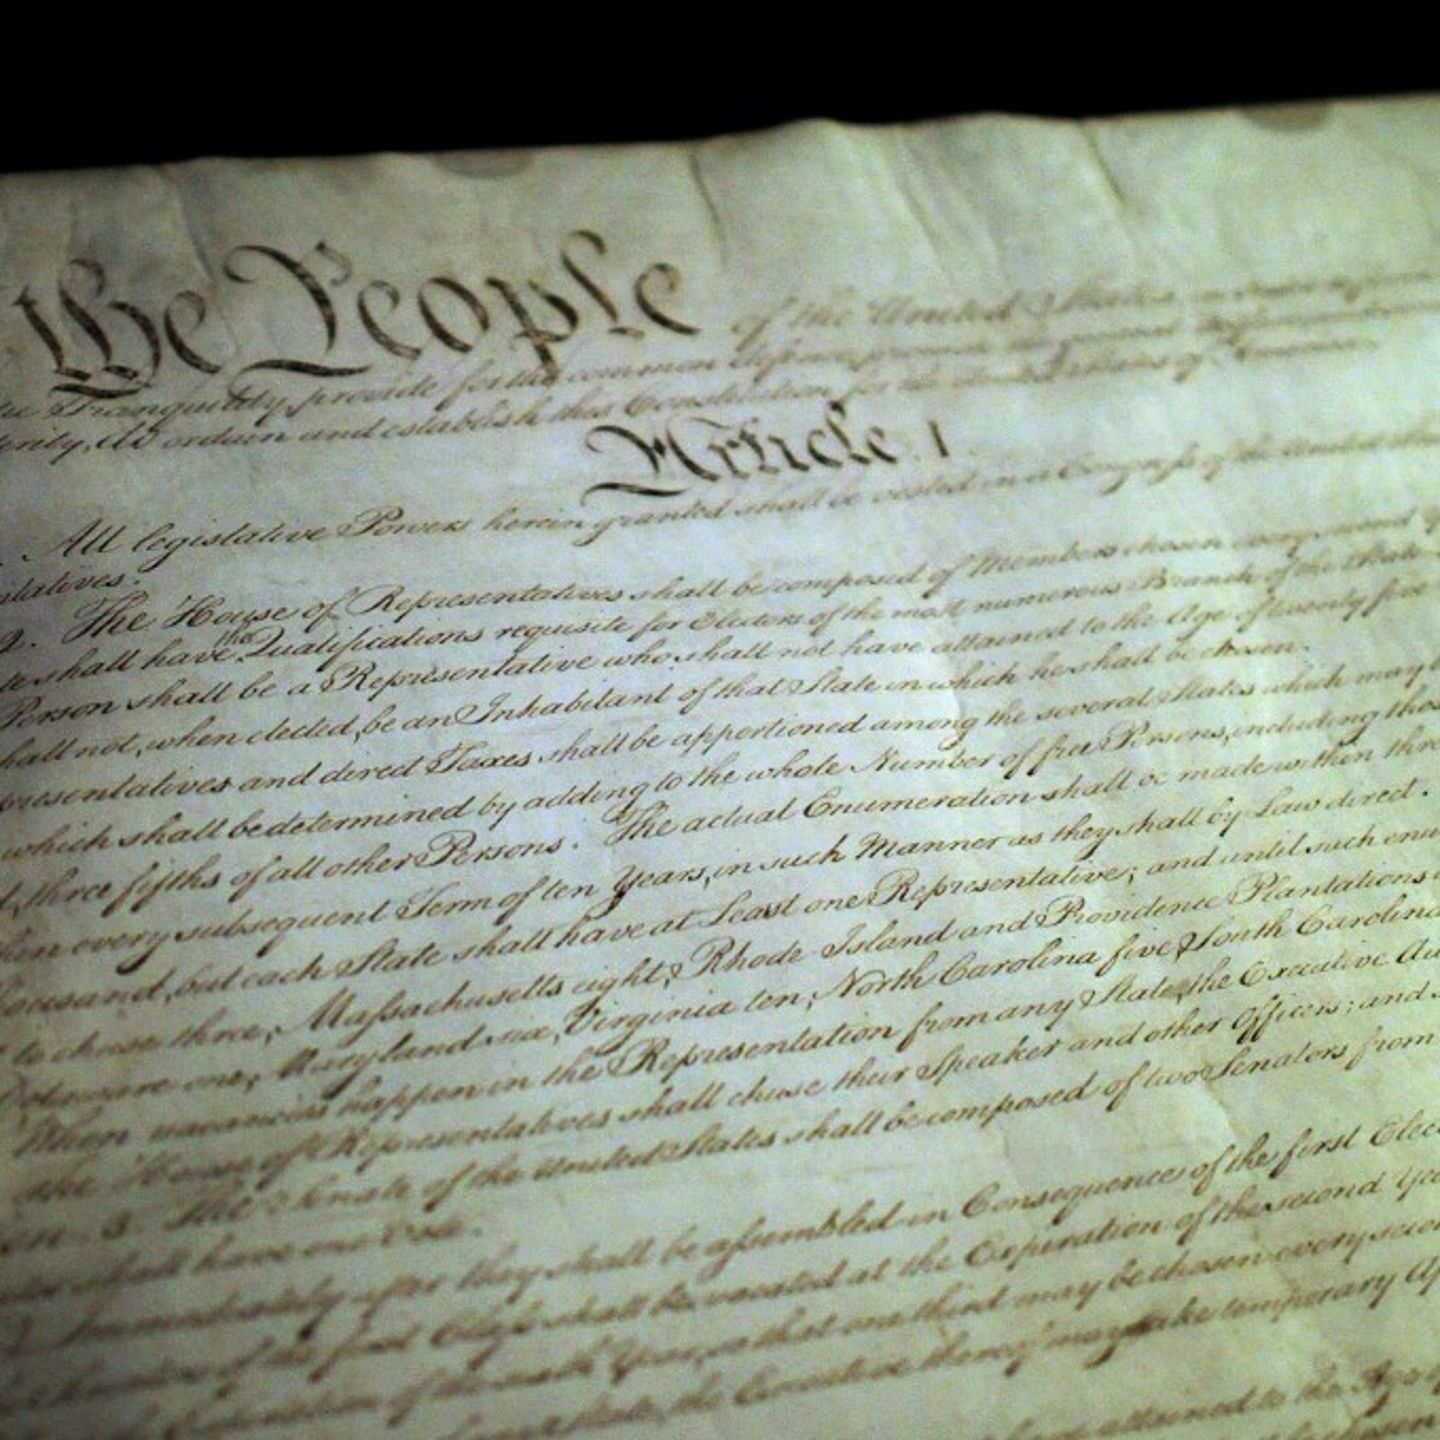 the People of the United States
Tranquility, provide for the common defence, promote the general
erity, do ordain and establish this Constitution for the United States of America.
Article. I.
All legislative Powers herein granted shall be vested in a Congress of the United
ntatives.
2. The House of Representatives shall be composed of Members chosen every second
te shall have the Qualifications requisite for Electors of the most numerous Branch of the State
Person shall be a Representative who shall not have attained to the Age of twenty five
hall not, when elected, be an Inhabitant of that State in which he shall be chosen.
presentatives and direct Taxes shall be apportioned among the several States which may b
which shall be determined by adding to the whole Number of free Persons, including thos
d, three fifths of all other Persons. The actual Enumeration shall be made within thre
hin every subsequent Term of ten Years, in such Manner as they shall by Law direct.
housand, but each State shall have at Least one Representative; and until such enu
to chuse three, Massachusetts eight, Rhode Island and Providence Plantations
Delaware one, Maryland six, Virginia ten, North Carolina five, South Carolina
When vacancies happen in the Representation from any State, the Executive Au
The House of Representatives shall chuse their Speaker and other Officers; and
on. 3. The Senate of the United States shall be composed of two Senators from
shall have one Vote.
Immediately after they shall be assembled in Consequence of the first Elec
of the first Class shall be vacated at the Expiration of the second Yea
Expiration of the sixth Year, so that one third may be chosen every secon
State, the Executive thereof may make temporary Ap
attained to the Age
chosen